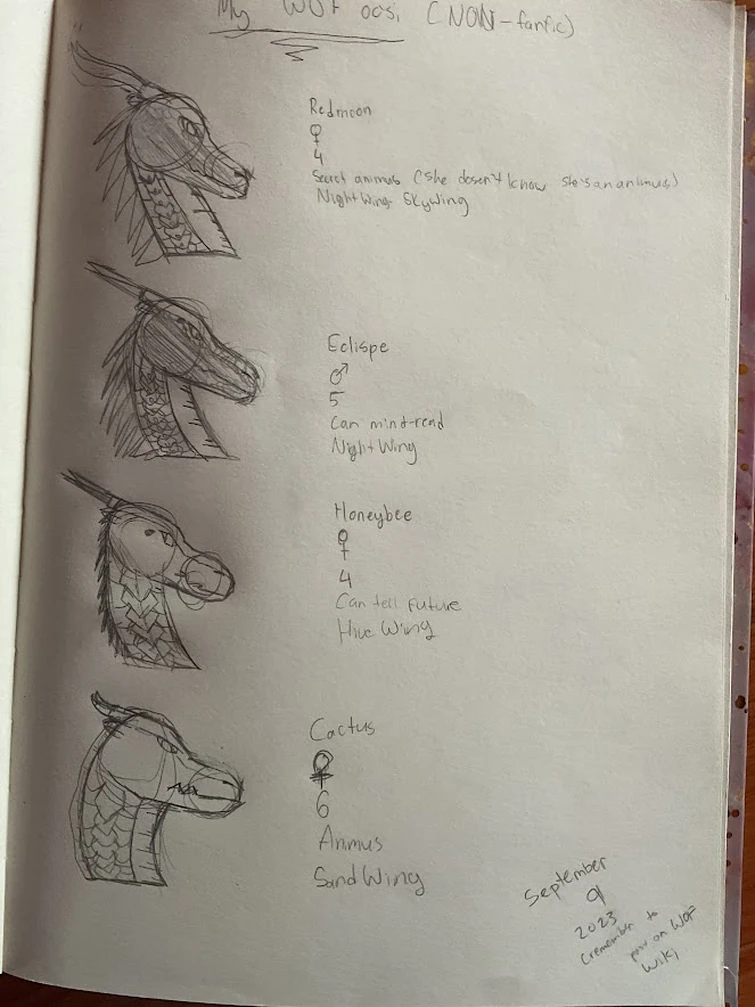 My WOF ocs, (NON-fanfic)
Redmoon
♀
4
Secret animus (she doesn't know she's an animus)
NightWing SkyWing
Eclispe
♂
5
Can mind-read
NightWing
Honeybee
♀
4
Can tell future
HiveWing
Cactus
♀
6
Animus
SandWing
September
9
2023
(remember to
on WOF
Wiki